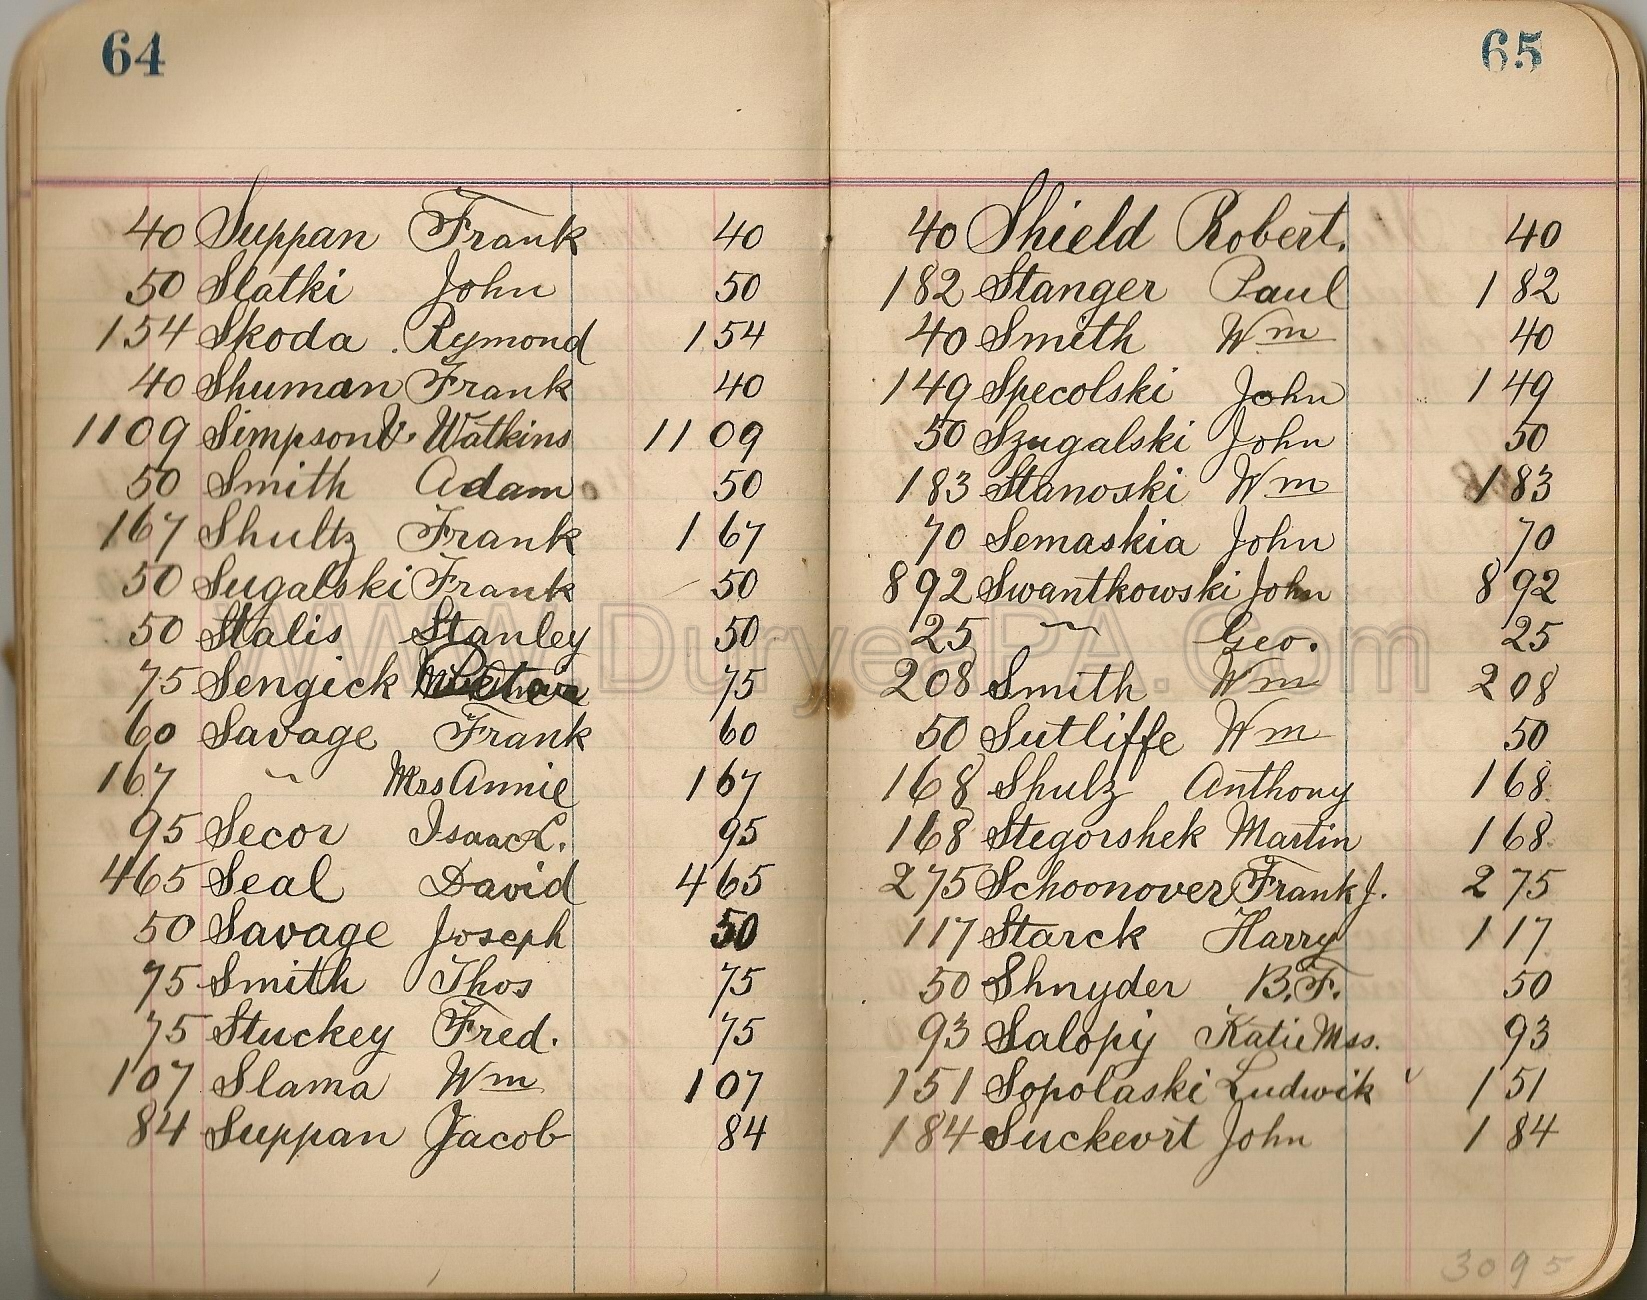 64
40 Suppan Frank 40
50 Slatki John 50
154 Skoda Rymond 154
40 Shuman Frank 40
1109 Simpson & Watkins 1109
50 Smith Adam 50
167 Shultz Frank 167
50 Sugalski Frank 50
50 Stalis Stanley 50
75 Sengick 75
60 Savage Frank 60
167 " Mrs Annie 167
95 Secor Isaac L. 95
465 Seal David 465
50 Savage Joseph 50
75 Smith Thos 75
75 Stuckey Fred. 75
107 Slama Wm 107
84 Suppan Jacob 84
65
40 Shield Robert. 40
182 Stanger Paul 182
40 Smith Wm 40
149 Specolski John 149
50 Szugalski John 50
183 Stanoski Wm 183
70 Semaskia John 70
892 Swantkowski John 892
25 " Geo. 25
208 Smith Wm 208
50 Sutliffe Wm 50
168 Shulz Anthony 168
168 Stegorshek Martin 168
275 Schoonover Frank J. 275
117 Starck Harry 117
50 Shnyder B.F. 50
93 Salopiy Katie Mss. 93
151 Sopolaski Ludwik 151
184 Suckevrt John 184
3095
www.DuryeaPA.Com